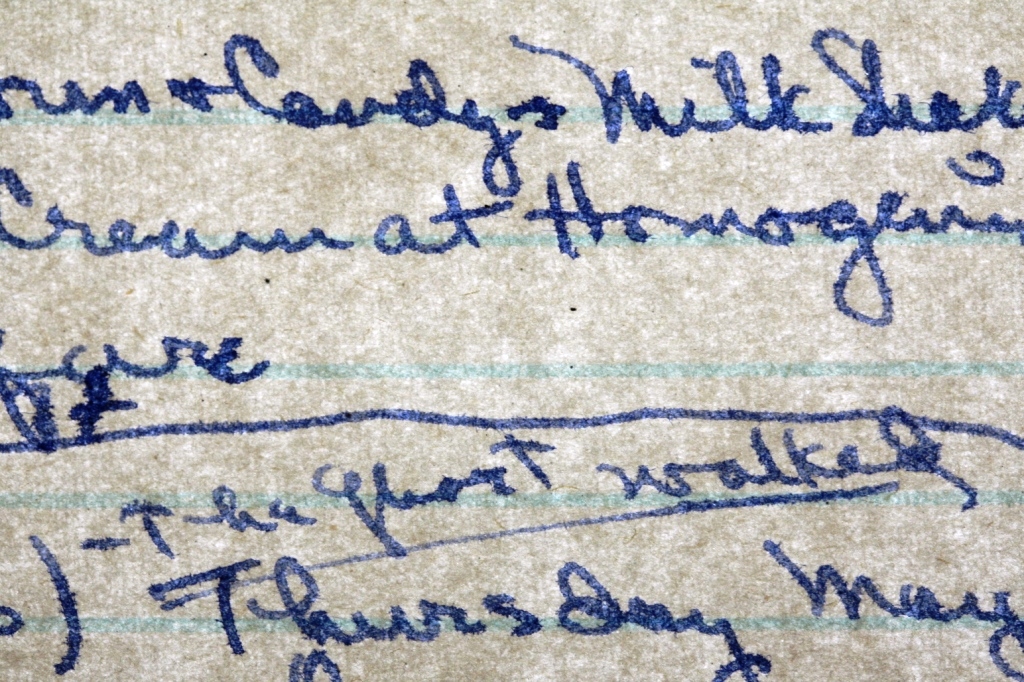 orn & Candy & Milk Shak
Cream at Homogeni
- The Ghost walked
) Thursday May